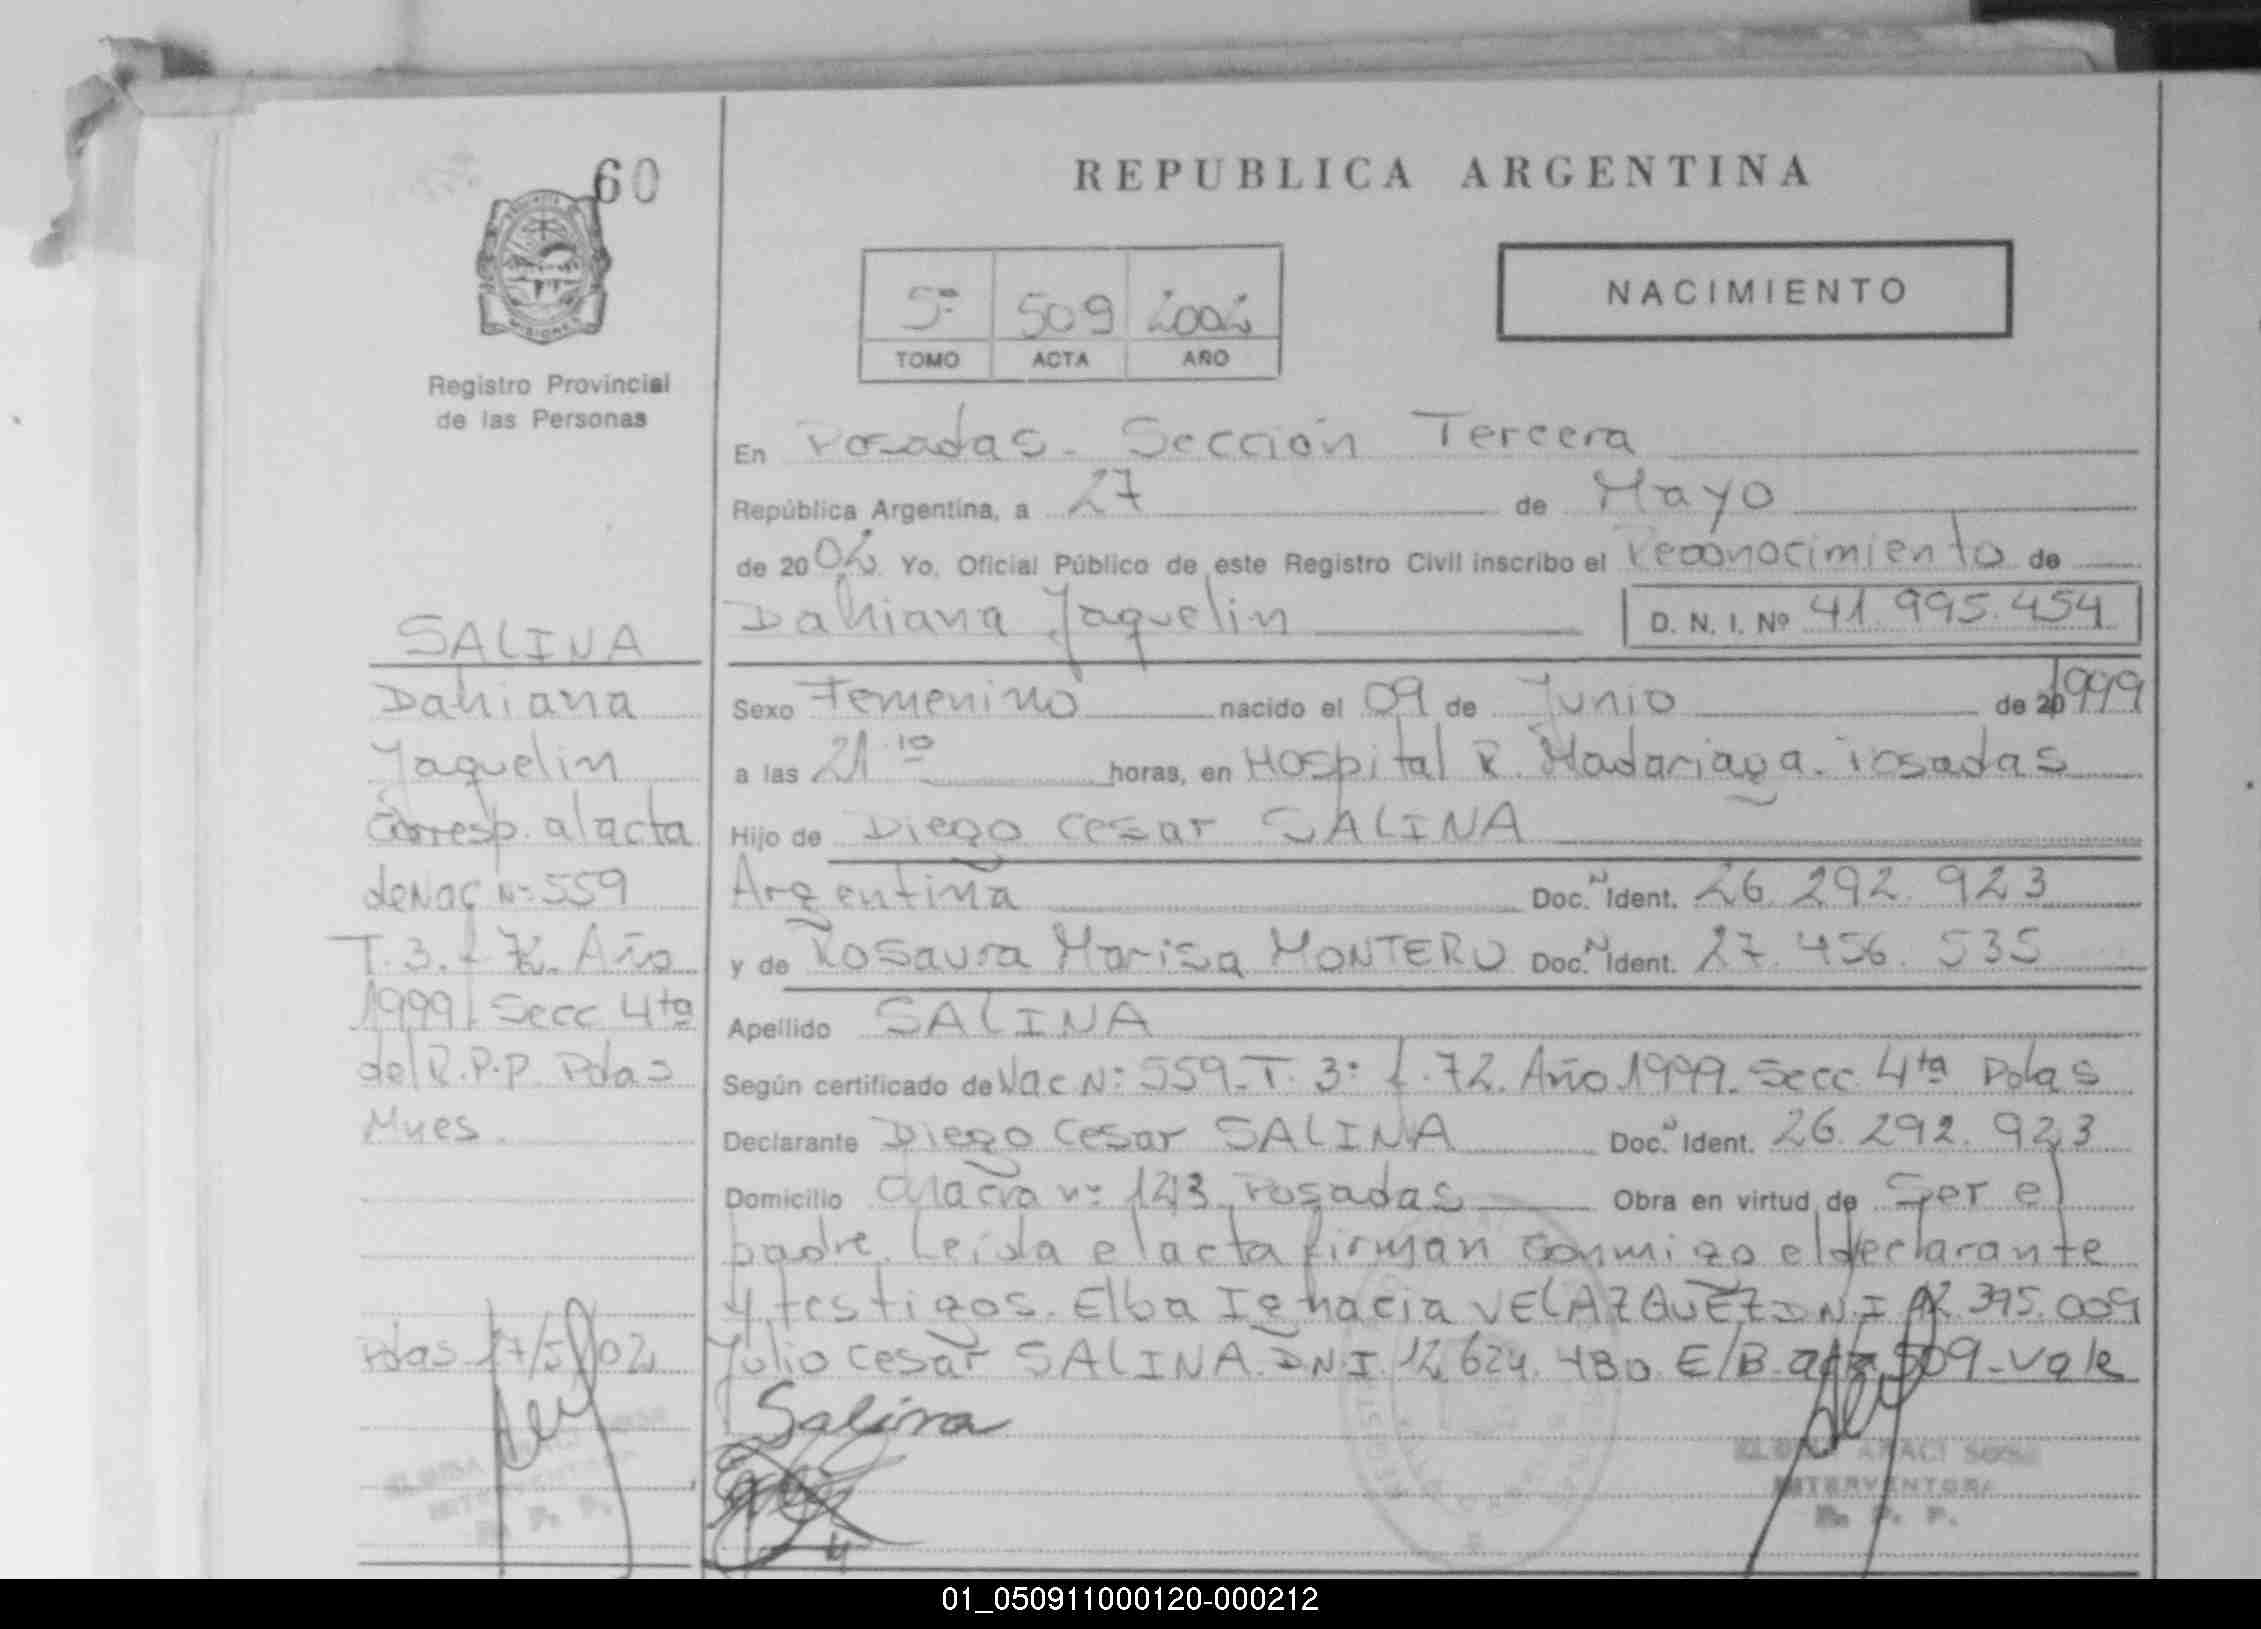 60
REPUBLICA ARGENTINA
NACIMIENTO
5º 509 2002
TOMO ACTA AÑO
MISIONES
Registro Provincial
de las Personas
En Posadas - Sección Tercera
República Argentina, a 27 de Mayo
de 2002 Yo, Oficial Público de este Registro Civil inscribo el Reconocimiento de
Dahiana Jaquelin D. N. I. Nº 41.995.454
Sexo Femenino nacido el 09 de Junio de 20 1999
a las 21 10 horas, en Hospital R. Madariaga. Posadas
Hijo de Diego Cesar SALINA
Argentina Doc. N Ident. 26.292.923
y de Rosaura Marisa MONTERO Doc. N Ident. 27.456.535
Apellido SALINA
Según certificado de Nac Nº 559 - T. 3º f. 72. Año 1999. Secc 4ta Pdas
Declarante Diego Cesar SALINA Doc. N Ident. 26.292.923
Domicilio Chacra nº 123 Posadas Obra en virtud de Ser el
padre. Leída el acta firman conmigo el declarante
y testigos. Elba Ignacia VELAZQUEZ D.N.I 12.395.009
Julio Cesar SALINA. D.N.I. 12.624.480. E/B. acta 509 - Vale
SALINA
Dahiana
Jaquelin
Corresp. al acta
de Nac Nº 559
T. 3. f 72. Año
1999 Secc 4ta
del R.P.P. Pdas
Mnes.
Pdas 27/5/02
Salina
ARACI SOSA
INTERVENTORA
R. P. P.
INTERVENTORA
R. P. P.
01_050911000120-000212